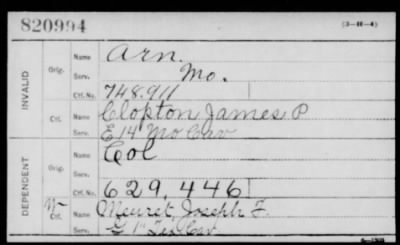 820994 (3-H-4)
INVALID
Orig. Name Arn.
Serv. Mo.
Ctf. No. 748.911
Ctf. Name Clopton James P
Serv. E 14 Mo Cav
DEPENDENT
Orig. Name Col
Serv.
Ctf. No. 629,446
Ctf. Name Meuret, Joseph F.
Serv. G 1" Tex Cav